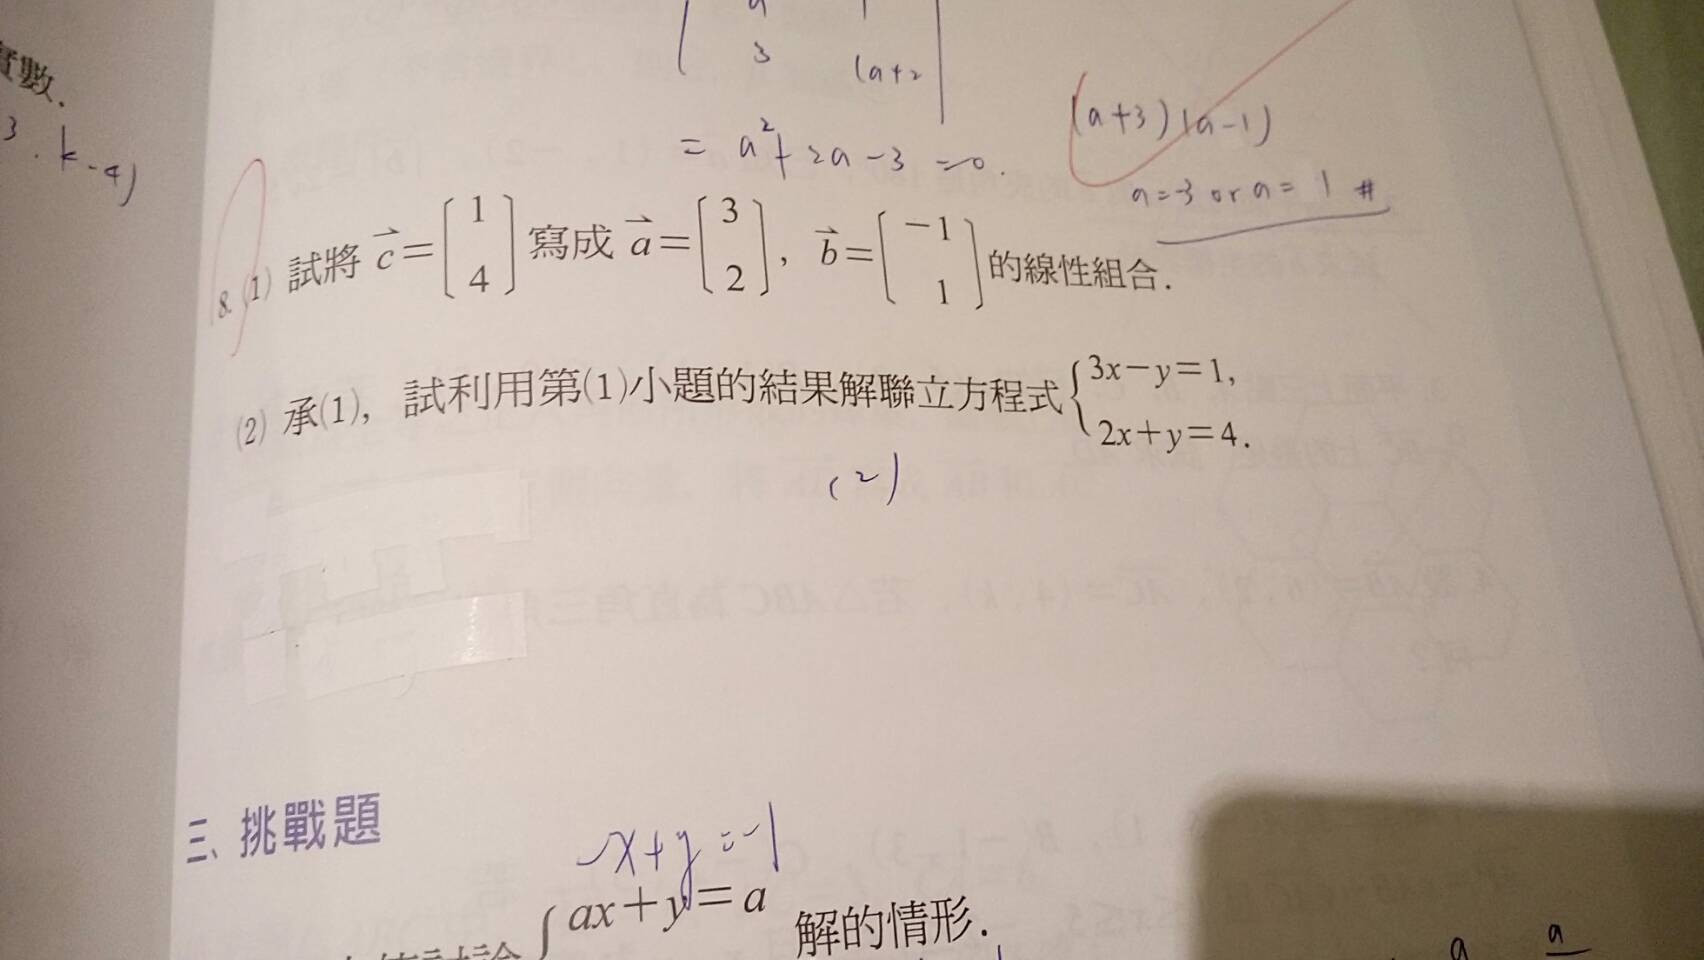 實數.
3. k-4)
a 1
3 (a+2
= a²+2a-3=0.
(a+3)(a-1)
a=-3 or a=1 #
8. (1) 試將 c⃗=[1 4] 寫成 a⃗=[3 2], b⃗=[-1 1]的線性組合.
(2) 承(1), 試利用第(1)小題的結果解聯立方程式{3x-y=1,
2x+y=4.
(2)
三、挑戰題
-x+y=-1
{ax+y=a
解的情形.
a a